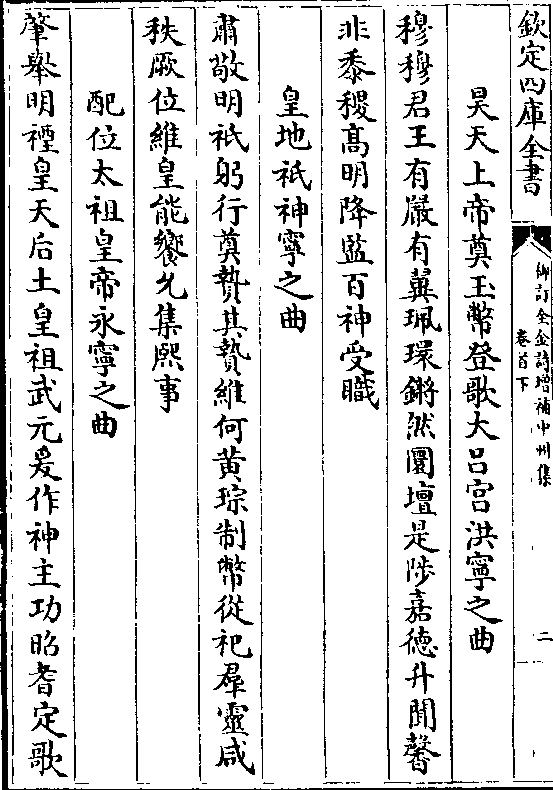 欽定四庫全書
御訂全金詩增補中州集
卷首下
二
昊天上帝奠玉幣登歌大吕宫洪寧之曲
穆穆君王有嚴有翼珮環鏘然圜壇是陟嘉德升聞馨
非黍稷髙明降監百神受職
皇地祇神寧之曲
肅敬明祇躬行奠贄其贄維何黄琮制幣從祀羣靈咸
秩厥位維皇能饗允集熙事
配位太祖皇帝永寧之曲
肇舉明禋皇天后土皇祖武元爰作神主功昭耆定歌